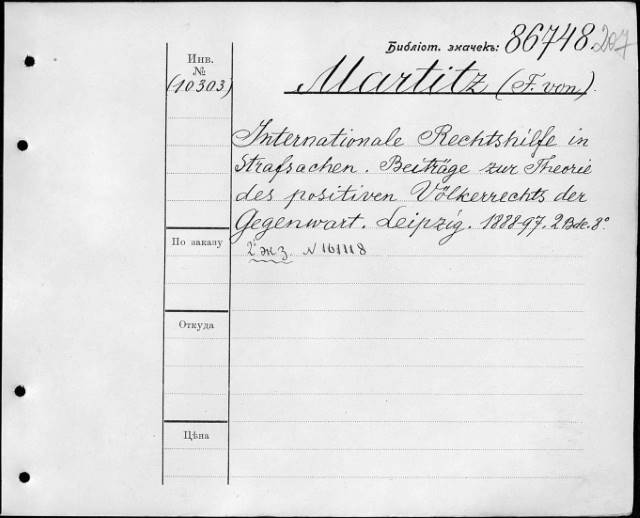 Библіот. значекъ: 86748.207
Инв.
№
(10303)
Martitz (F. von).
Internationale Rechtshilfe in
Strafsachen. Beiträge zur Theorie
des positiven Völkerrechts der
Gegenwart. Leipzig. 1888-97. 2 Bde. 8°
2й экз. N 161118
По заказу
Откуда
Цѣна